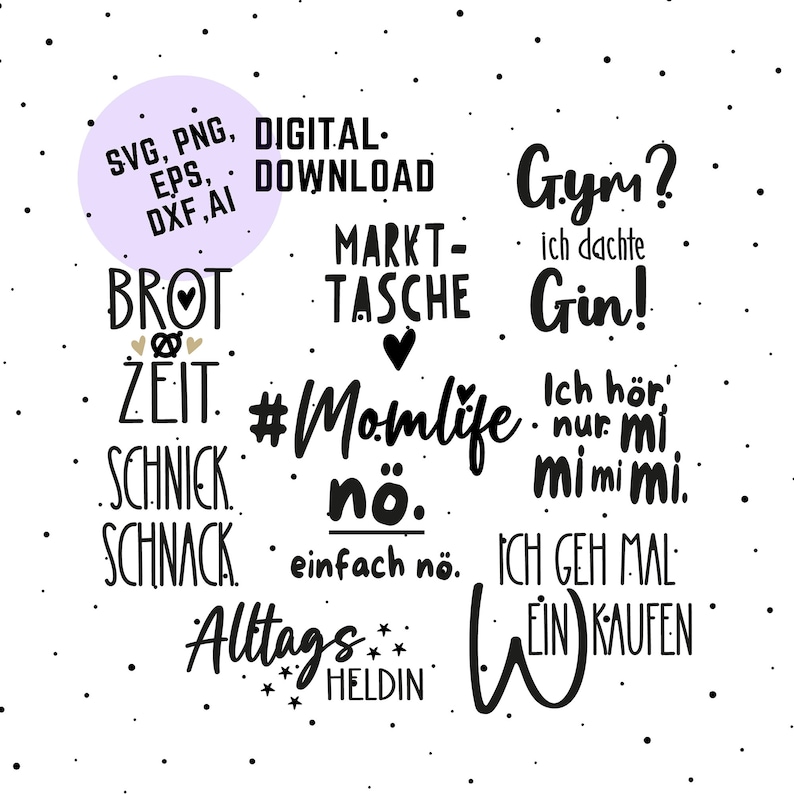 SVG, PNG,
EPS,
DXF ,AI
DIGITAL
DOWNLOAD
BROT
ZEIT
SCHNICK
SCHNACK
MARKT-
TASCHE
#Momlife
nö.
einfach nö.
Alltags
HELDIN
Gym?
ich dachte
Gin!
Ich hör'
nur mi
mi mi mi.
ICH GEH MAL
WEIN)KAUFEN